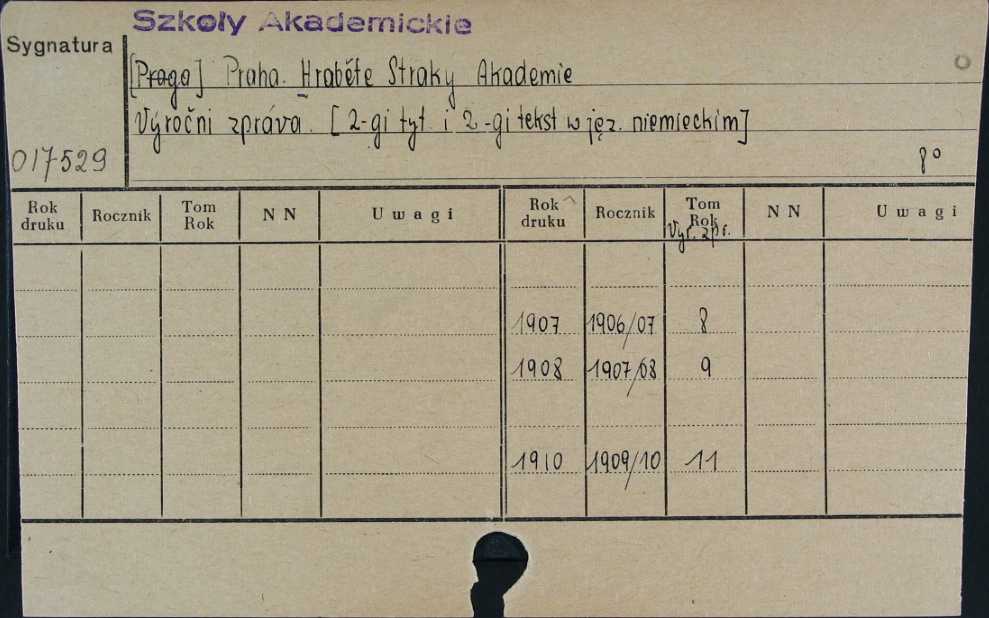 Szkoły Akademickie
Sygnatura
[Praga] Praha. Hraběte Straky Akademie
Výročni zpráva. [2-gi tyt. i 2-gi tekst w jęz. niemieckim]
017529
8°
Rok druku Rocznik Tom Rok NN Uwagi Rok druku Rocznik Tom Rok NN Uwagi
Výr. zpr.
1907 1906/07 8
1908 1907/08 9
1910 1909/10 11